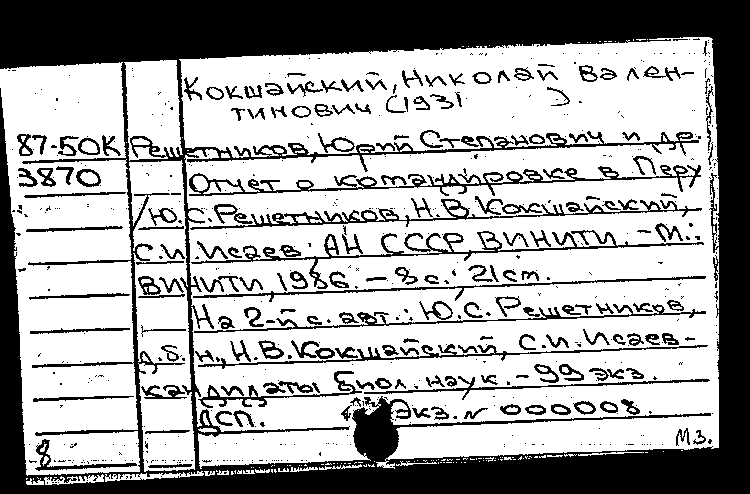 Кокшайский, Николай Вален-
тинович (1931 ).
87-50К Решетников, Юрий Степанович и др.
3870 Отчет о командировке в Перу
/Ю.С.Решетников, Н.В.Кокшайский,
С.И.Исаев; АН СССР, ВИНИТИ. - М.:
ВИНИТИ, 1986. - 8 с.; 21 см.
На 2-й с. авт.: Ю.С.Решетников,
д.б.н., Н.В.Кокшайский, С.И.Исаев-
кандидаты биол. наук. - 99 экз.
ДСП. Экз. № 000008.
8 М.З.